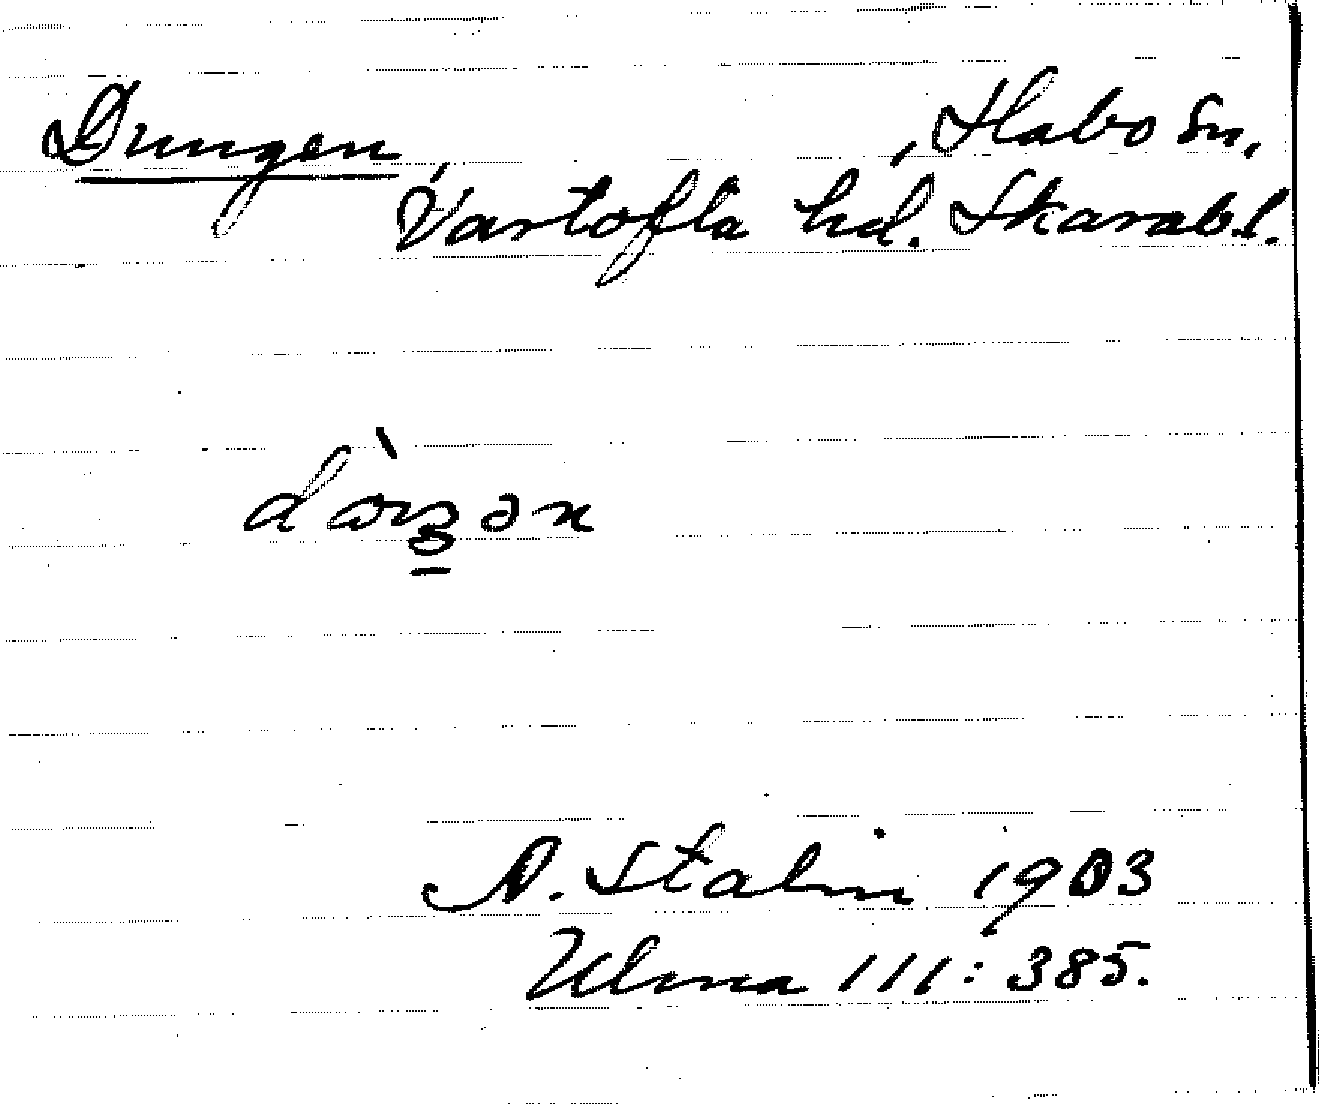 Dungen, Habo Sn,
Vartofta hd. Skarab.l.
A. Stalin 1903
Ulma 111: 385.